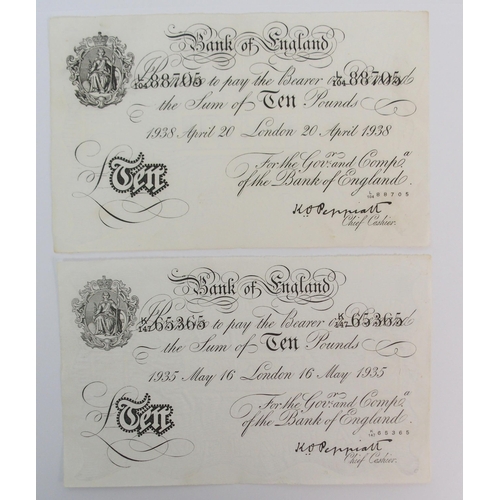 Bank of England
L/104 88705 L/104 88705
to pay the Bearer
the Sum of Ten Pounds
1938 April 20 London 20 April 1938
For the Govr. and Compa.
of the Bank of England.
£Ten
L/104 88705
K.O. Peppiatt
Chief Cashier.
Bank of England
K/147 65365 K/147 65365
to pay the Bearer
the Sum of Ten Pounds
1935 May 16 London 16 May 1935
For the Govr. and Compa.
of the Bank of England.
£Ten
K/147 65365
K.O. Peppiatt
Chief Cashier.